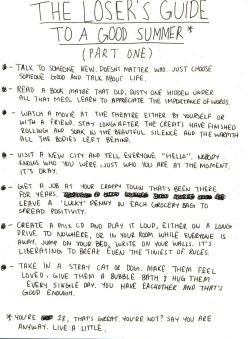 THE LOSER'S GUIDE
TO A GOOD SUMMER*
(PART ONE)
- TALK TO SOMEONE NEW. DOESN'T MATTER WHO. JUST CHOOSE
SOMEONE GOOD AND TALK ABOUT LIFE.
- READ A BOOK. MAYBE THAT OLD, DUSTY ONE HIDDEN UNDER
ALL THAT MESS. LEARN TO APPRECIATE THE IMPORTANCE OF WORDS.
- WATCH A MOVIE AT THE THEATRE EITHER BY YOURSELF OR
WITH A FRIEND. STAY LONG AFTER THE CREDITS HAVE FINISHED
ROLLING AND SOAK IN THE BEAUTIFUL SILENCE AND THE WARMTH
ALL THE BODIES LEFT BEHIND.
- VISIT A NEW CITY AND TELL EVERYONE "HELLO". NOBODY
KNOWS WHO YOU ARE JUST WHO YOU ARE AT THE MOMENT.
IT'S OKAY.
- GET A JOB AT YOUR CRAPPY TOWN THAT'S BEEN THERE
FOR YEARS.
LEAVE A 'LUCKY' PENNY IN EACH GROCERY BAG TO
SPREAD POSITIVITY.
- CREATE A MIX CD AND PLAY IT LOUD, EITHER ON A LONG
DRIVE TO NOWHERE, OR IN YOUR ROOM WHILE EVERYONE IS
AWAY. JUMP ON YOUR BED, WRITE ON YOUR WALLS. IT'S
LIBERATING TO BREAK EVEN THE TINIEST OF RULES.
- TAKE IN A STRAY CAT OR DOG. MAKE THEM FEEL
LOVED. GIVE THEM A BUBBLE BATH & HUG THEM
EVERY SINGLE DAY. YOU HAVE EACHOTHER AND THAT'S
GOOD ENOUGH.
* YOU'RE 18, THAT'S GREAT. YOU'RE NOT? SAY YOU ARE
ANYWAY. LIVE A LITTLE.